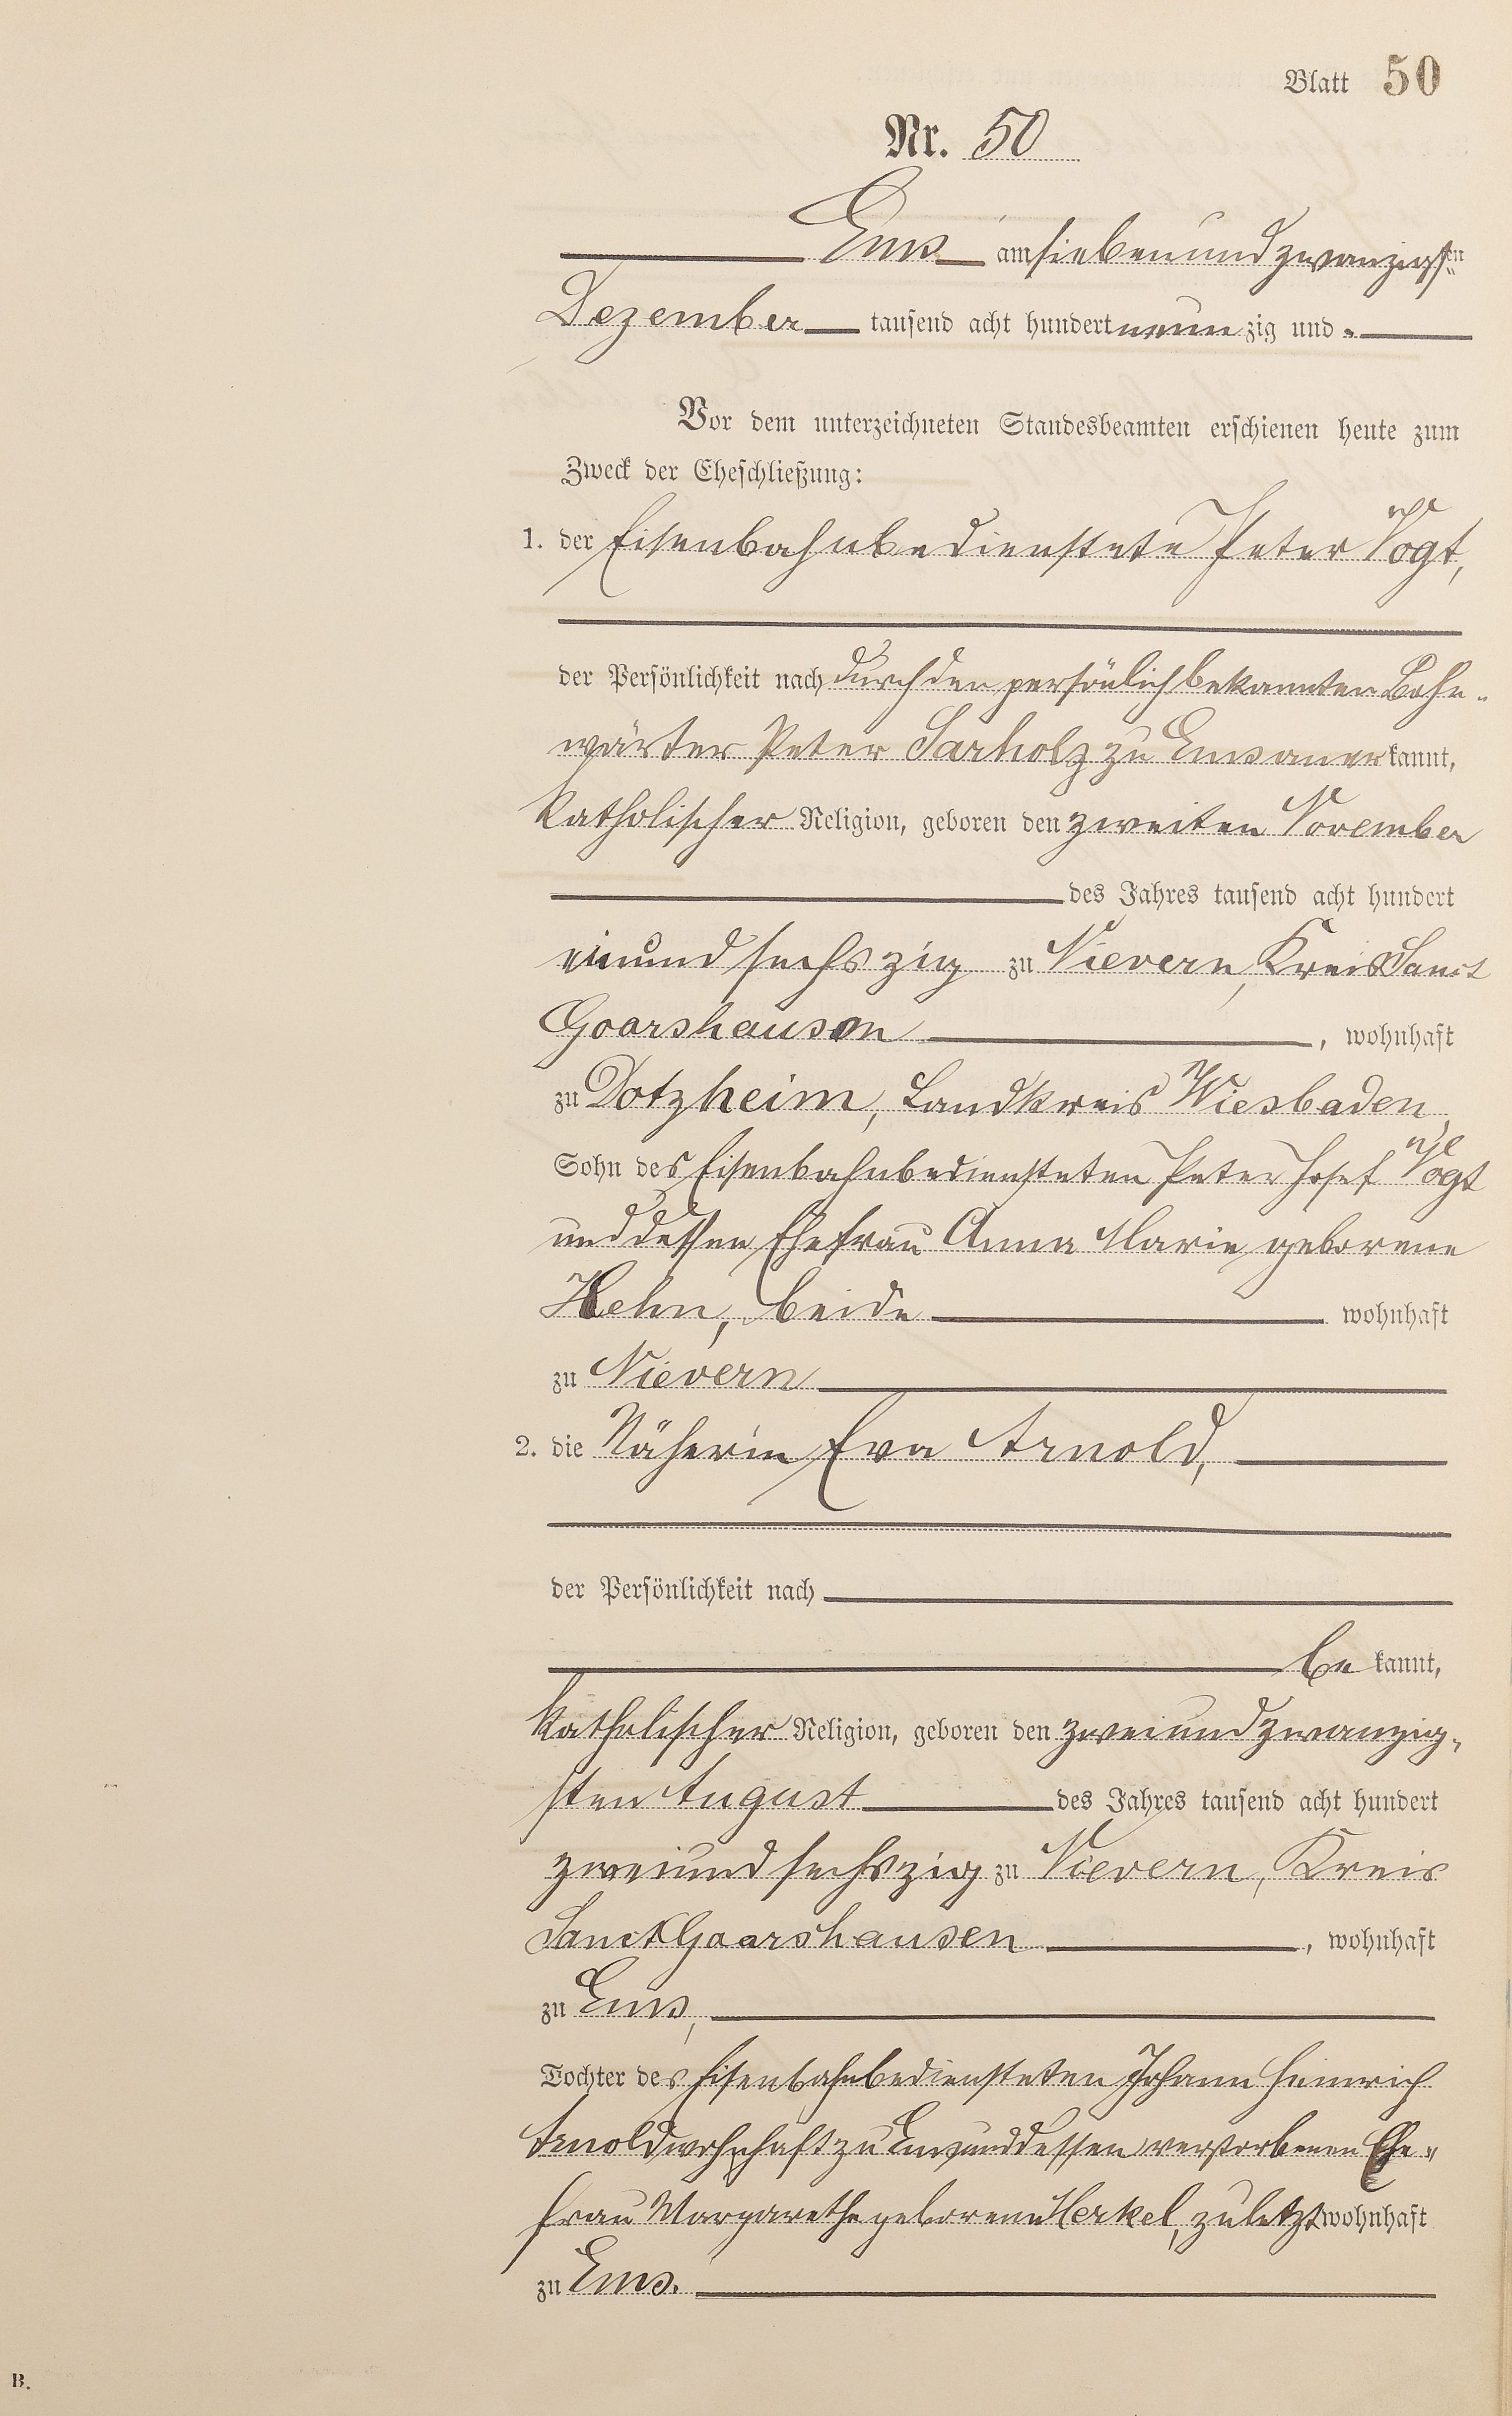 Blatt 50
Nr. 50
Ems am siebenundzwanzigsten
Dezember tausend acht hundert neun zig und
Vor dem unterzeichneten Standesbeamten erschienen heute zum
Zweck der Eheschließung:
1. der Eisenbahnbedienstete Peter Vogt,
der Persönlichkeit nach durch den persönlich bekannten Bahn-
wärter Peter Sarholz zu Ems anerkannt,
katholischer Religion, geboren den zweiten November
des Jahres tausend acht hundert
einundsechszig zu Nievern, Kreis Sanct
Goarshausen, wohnhaft
zu Dotzheim, Landkreis Wiesbaden
Sohn des Eisenbahnbediensteten Peter Josef Vogt
und dessen Ehefrau Anna Marie geborene
Hehn, beide wohnhaft
zu Nievern
2. die Näherin Eva Arnold,
der Persönlichkeit nach
be kannt,
katholischer Religion, geboren den zweiundzwanzig-
sten August des Jahres tausend acht hundert
zweiundsechszig zu Nievern, Kreis
Sanct Goarshausen, wohnhaft
zu Ems,
Tochter des Eisenbahnbediensteten Johann Heinrich
Arnold wohnhaft zu Ems und dessen verstorbenen Ehe-
frau Margarethe geborene Herkel, zuletzt wohnhaft
zu Ems.
B.